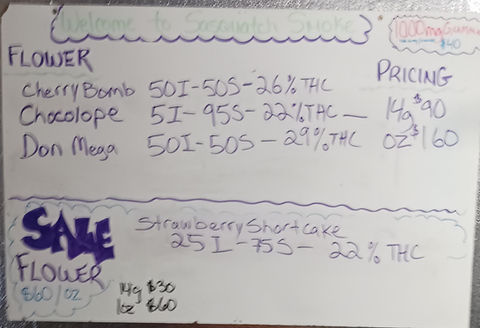 Welcome to Sasquatch Smoke
1000mg Gummies
$40
FLOWER
PRICING
Cherry Bomb 50I-50S-26% THC
Chocolope 5I-95S-22% THC — 14g $90
Don Mega 50I-50S-29% THC oz $160
SALE
FLOWER
$60/oz
Strawberry Shortcake
25I-75S-22% THC
14g $30
1oz $60